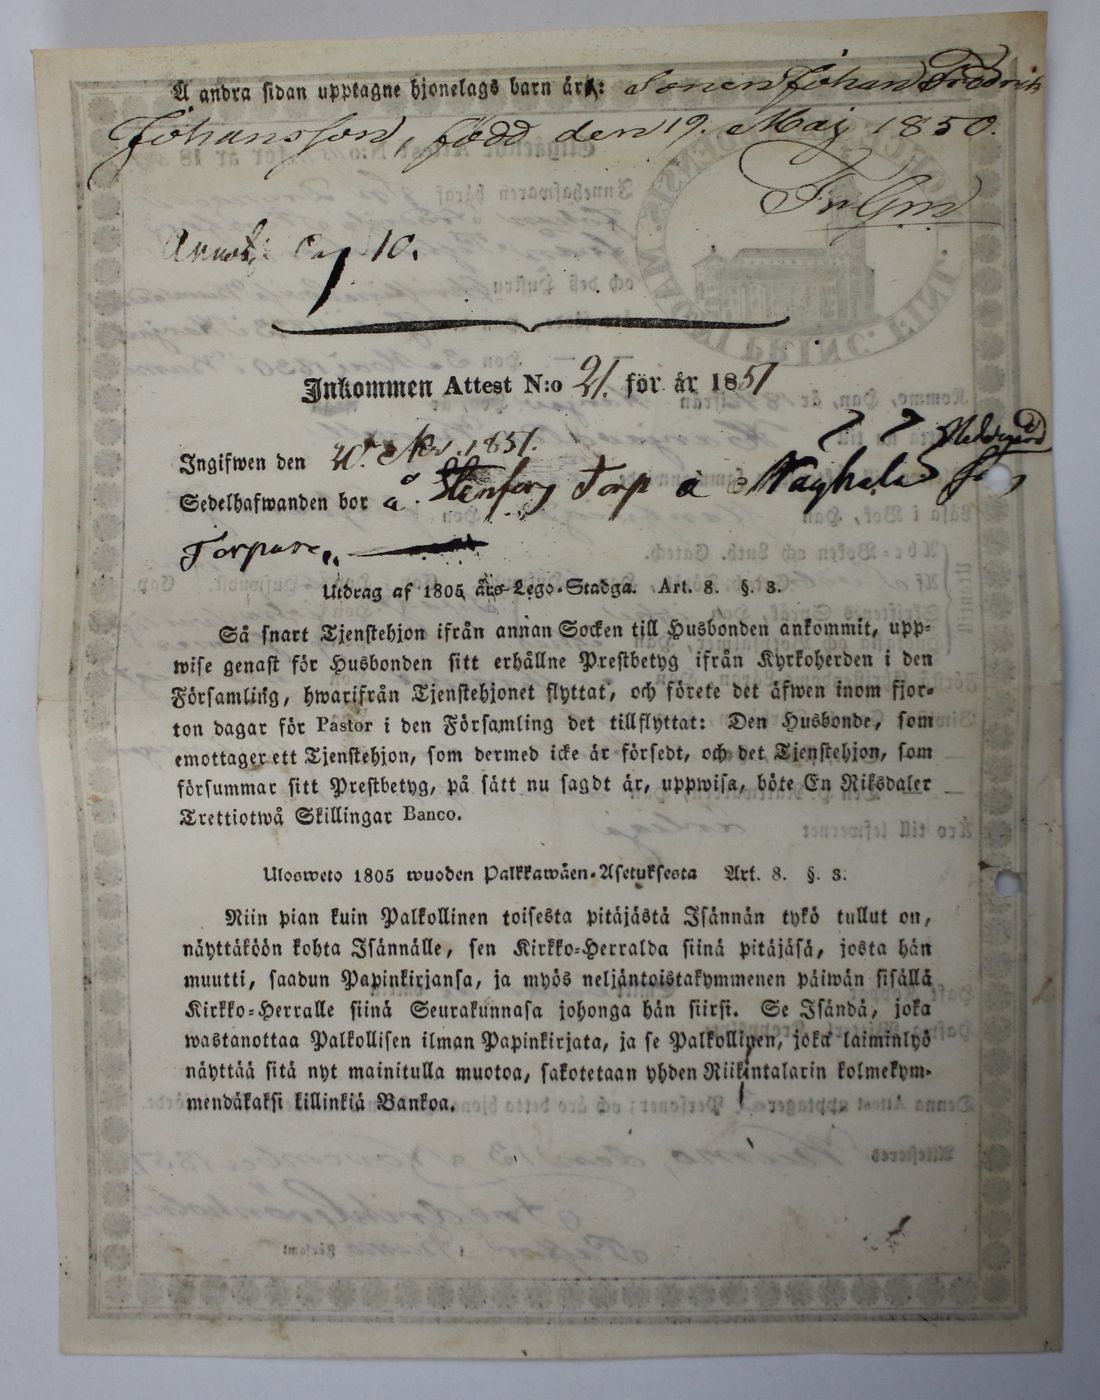 Å andra sidan upptagne hjonelags barn är: Sonen Johan Fredrik
Johansson, född den 19. Maj 1850.
10.
Inkommen Attest N:o 21. för år 1851
Ingifwen den 20. Nov. 1851.
Sedelhafwanden bor å Torp å
Torpare.
Utdrag af 1805 års Lego-Stadga. Art. 8. §. 3.
Så snart Tjenstehjon ifrån annan Socken till Husbonden ankommit, upp-
wise genast för Husbonden sitt erhållne Prestbetyg ifrån Kyrkoherden i den
Församling, hwarifrån Tjenstehjonet flyttat, och förete det äfwen inom fjor-
ton dagar för Pastor i den Församling det tillflyttat: Den Husbonde, som
emottager ett Tjenstehjon, som dermed icke är försedt, och det Tjenstehjon, som
försummar sitt Prestbetyg, på sätt nu sagdt är, uppwisa, böte En Riksdaler
Trettiotwå Skillingar Banco.
Ulosweto 1805 wuoden Palkkawäen-Asetuksesta Art. 8. §. 3.
Niin pian kuin Palkollinen toisesta pitäjästä Isännän tykö tullut on,
näyttäköön kohta Isännälle, sen Kirkko-Herralda siinä pitäjäsä, josta hän
muutti, saadun Papinkirjansa, ja myös neljäntoistakymmenen päiwän sisällä
Kirkko-Herralle siinä Seurakunnasa johonga hän siirsi. Se Isändä, joka
wastanottaa Palkollisen ilman Papinkirjata, ja se Palkollinen, joka laiminlyö
näyttää sitä nyt mainitulla muotoa, sakotetaan yhden Riikintalarin kolmekym-
mendäkaksi killinkiä Bankoa.